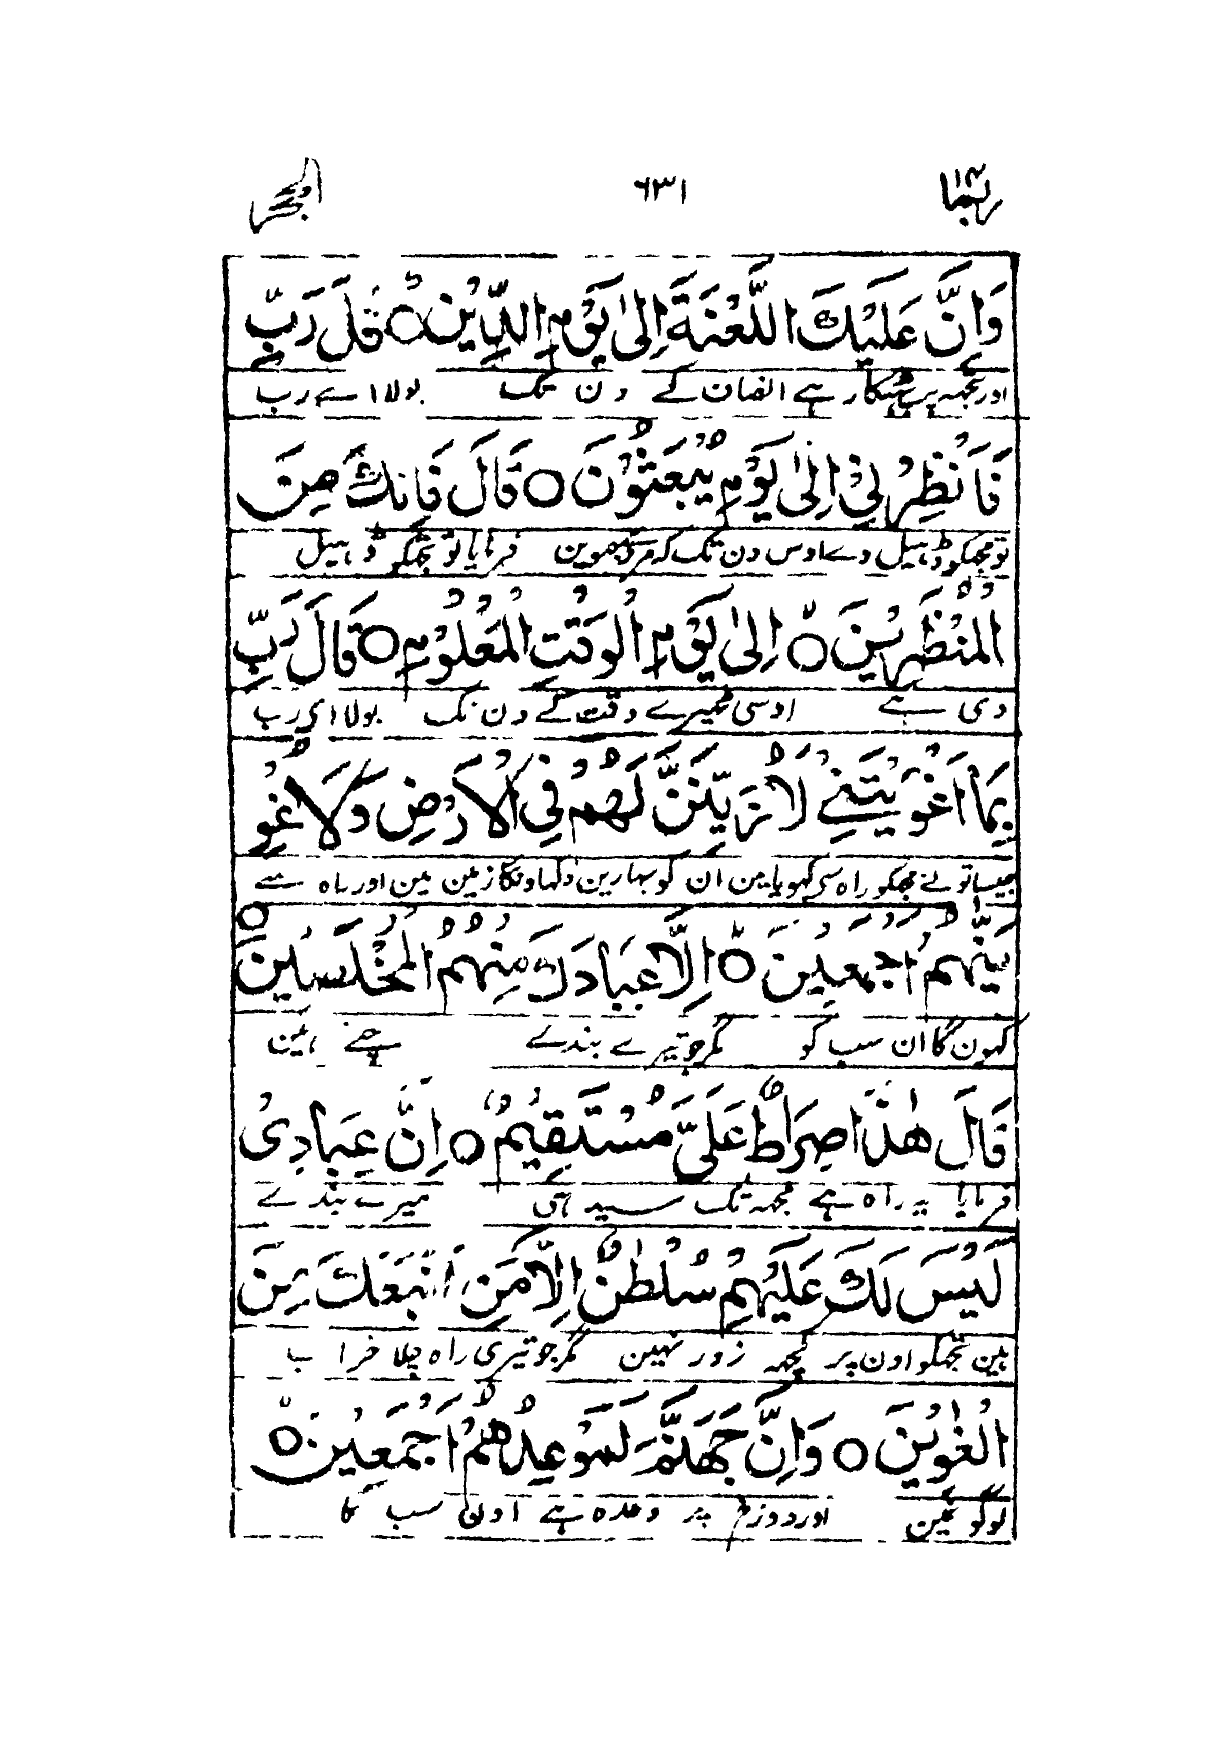 ربما ١٤ ٦٣١ الحجر
وَاِنَّ عَلَيْكَ اللَّعْنَةَ اِلٰى يَوْمِ الدِّيْنِ ○ قَالَ رَبِّ
اور تجھہ پر پھٹکار ہے انصاف کے دن تک بولا اے رب
فَاَنْظِرْنِيْٓ اِلٰى يَوْمِ يُبْعَثُوْنَ ○ قَالَ فَاِنَّكَ مِنَ
تو مجھکو ڈھیل دے اوس دن تک کہ مردے فرمایا تو تجھکو ڈھیل
الْمُنْظَرِيْنَ ○ اِلٰى يَوْمِ الْوَقْتِ الْمَعْلُوْمِ ○ قَالَ رَبِّ
دی ہے اوسی ٹھیرے وقت کے دن تک بولا ای رب
بِمَآ اَغْوَيْتَنِيْ لَاُزَيِّنَنَّ لَهُمْ فِي الْاَرْضِ وَلَاُغْوِ
جیسا تو نے مجھکو راہ سے کھویا مین ان کو بہارین دکھاونگا زمین مین اور راہ سے
يَنَّهُمْ اَجْمَعِيْنَ ○ اِلَّا عِبَادَكَ مِنْهُمُ الْمُخْلَصِيْنَ ○
کھون گا ان سب کو مگر جو تیرے بندے چنے ہین
قَالَ هٰذَا صِرَاطٌ عَلَيَّ مُسْتَقِيْمٌ ○ اِنَّ عِبَادِيْ
فرمایا یہ راہ ہے مجھہ تک سیدہی میرے بندے
لَيْسَ لَكَ عَلَيْهِمْ سُلْطٰنٌ اِلَّا مَنِ اتَّبَعَكَ مِنَ
ہین تجھکو اون پر کچھہ زور نہین مگر جو تیری راہ چلا خراب
الْغٰوِيْنَ ○ وَاِنَّ جَهَنَّمَ لَمَوْعِدُهُمْ اَجْمَعِيْنَ ○
لوگو نمین اور دوزخ پر وعدہ ہے اون سب کا